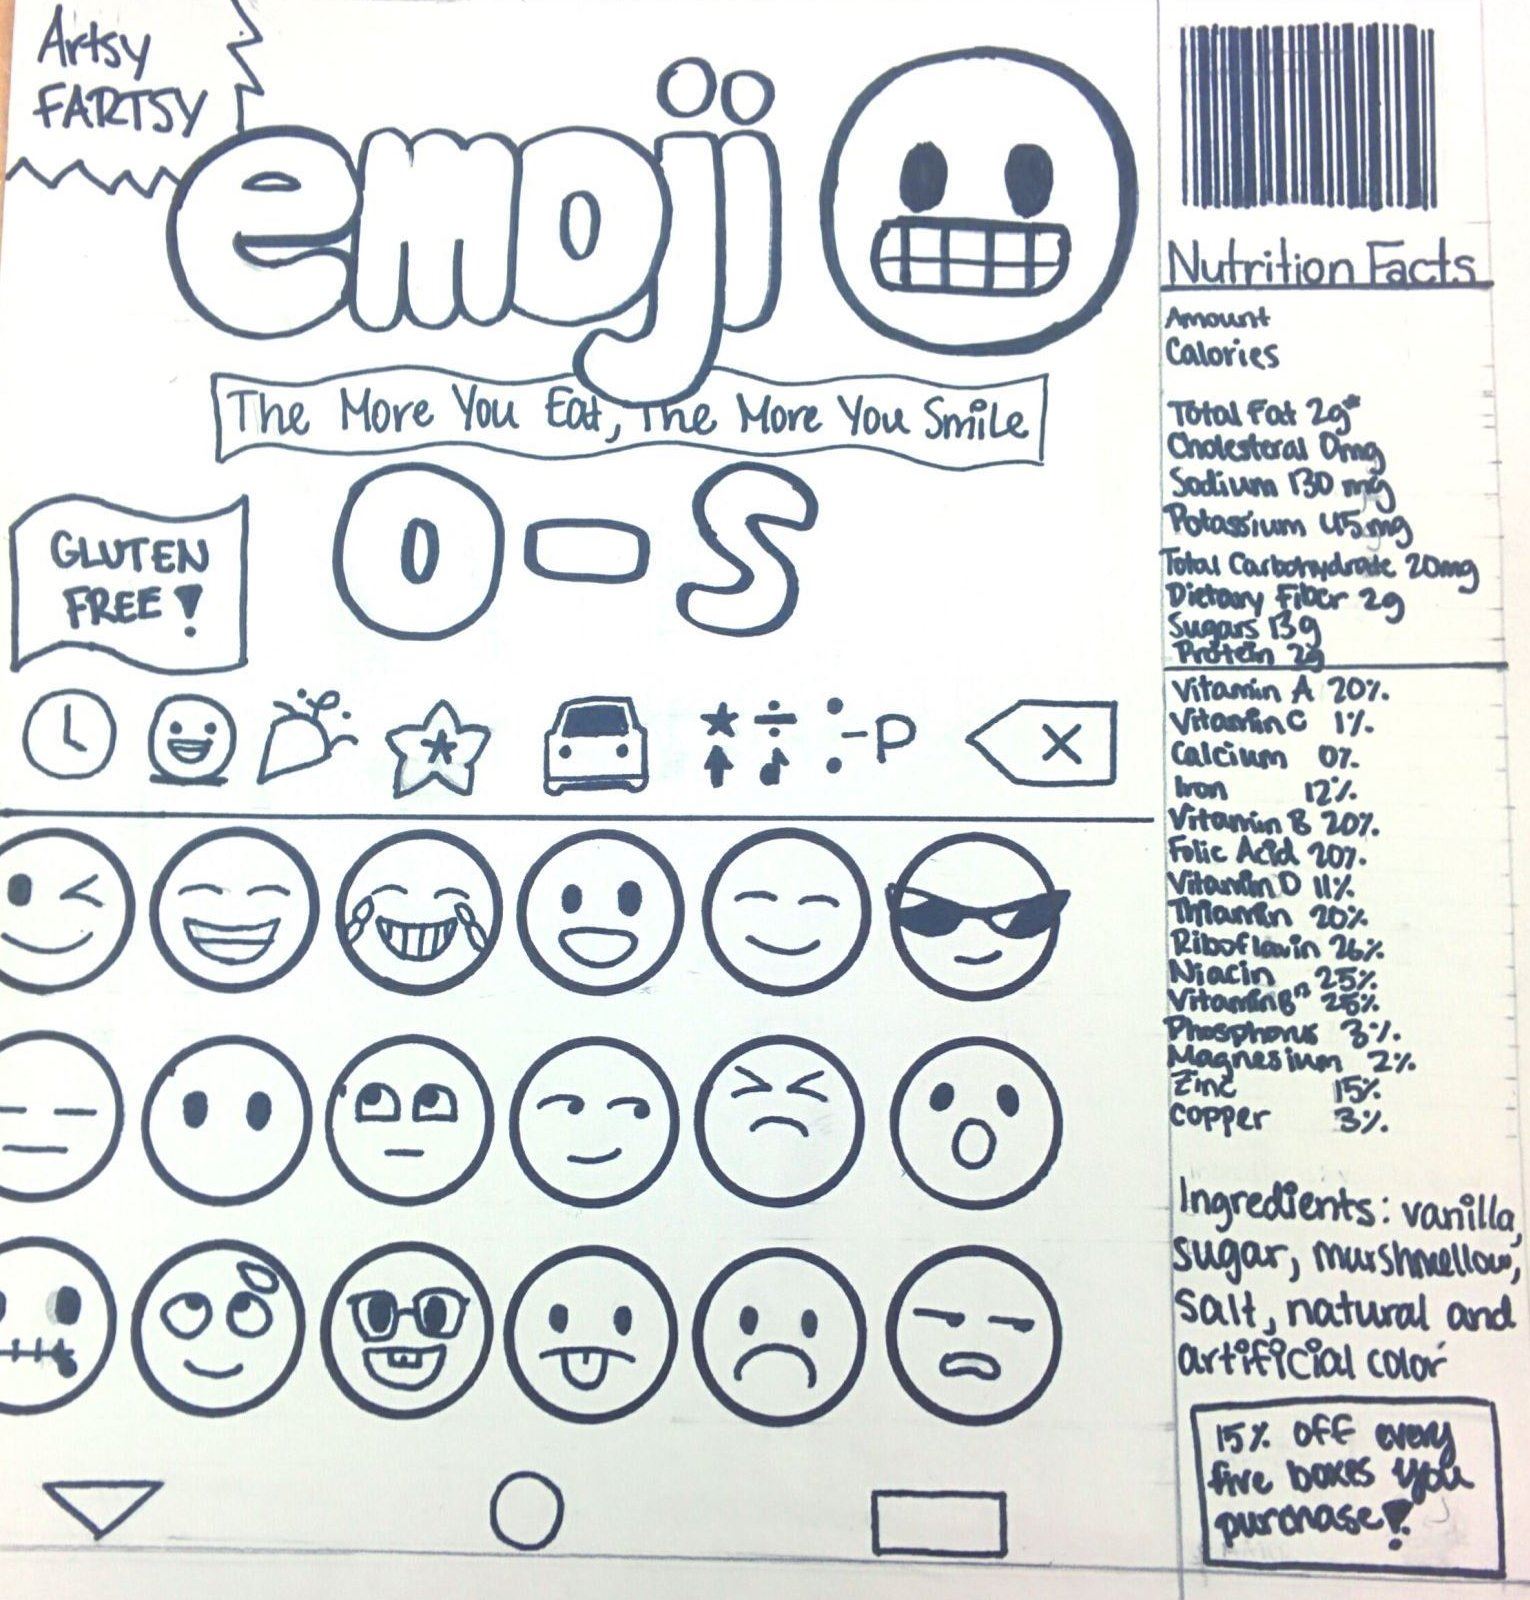 Artsy
FARTSY
emoji
The More You Eat, The More You Smile
O-S
GLUTEN
FREE!
:-P
X
Nutrition Facts
Amount
Calories
Total Fat 2g*
Cholesteral 0mg
Sodium 130 mg
Potassium 45mg
Total Carbohydrate 20mg
Dietary Fiber 2g
Sugars 13g
Protein 2g
Vitamin A 20%
Vitamin C 1%
Calcium 0%
Iron 12%
Vitamin B 20%
Folic Acid 20%
Vitamin D 11%
Thiamin 20%
Riboflavin 26%
Niacin 25%
Vitamin B¹² 25%
Phosphorus 3%
Magnesium 2%
Zinc 15%
Copper 3%
Ingredients: vanilla,
sugar, murshmellow,
salt, natural and
artificial color
15% off every
five boxes you
purchase!